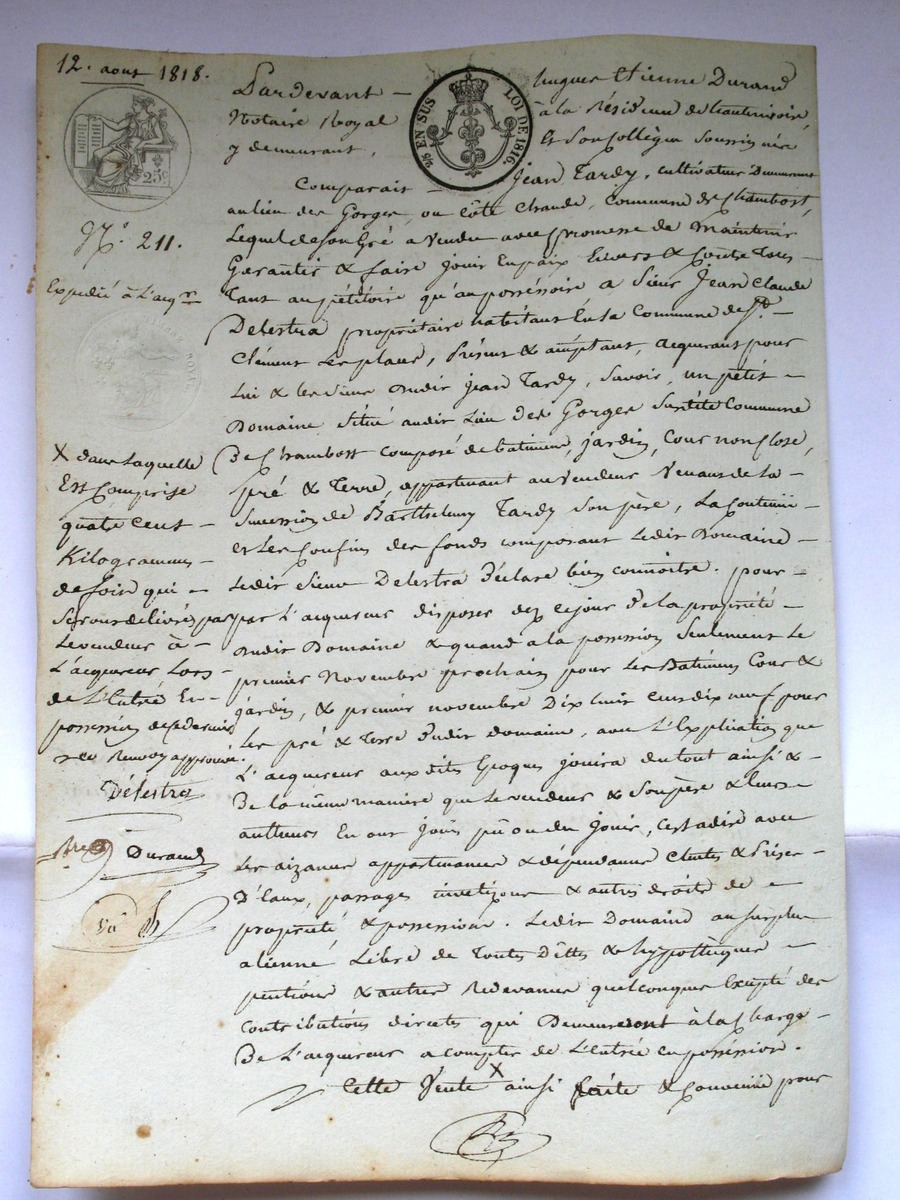 12. aout 1818.
25 EN SUS
LOI DE 1816.
25c
N.o 211.
Expedié à L'acqr
Pardevant — hugues Etienne Durand
Notaire Royal à la Résidence de
y demeurant, Et Son Collègue Soussignés
Comparait — Jean Tardy, cultivateur Demeurant
au lieu des Gorges, ou Côte Chaude, Commune de Chambost,
Lequel de Son Gré a Vendu avec promesse de Maintenir
Garantir & faire Jouir En paix Envers & Contre Tous
Tant au pétitoire qu'au possessoire a Sieur Jean Claude
Delestra propriétaire habitant En la Commune de St.
Clément Les places, Présent & acceptant, acquerant pour
Lui & les Siens dudit Jean Tardy, Savoir, un petit —
Domaine Situé audit Lieu des Gorges Susdite Commune
De Chambost Composé de batiment, jardin, Cour non Close,
pré & Terre, appartenant au Vendeur Venant de La —
Succession de Barthelemy Tardy Son père, La Contenue
et Les Confins des fonds composant Ledit Domaine —
Ledit Sieur Delestra Déclare bien connoitre. pour —
par L'acquereur disposer dez ce jour de la propriété —
dudit Domaine & quand a la possession Seulement Le
premier Novembre prochain pour Les Batimens Cour &
jardin, & premier novembre Dix huit cent dix neuf pour
Les pré & Terre dudit domaine, avec L'Explication que
L'acquereur aux dites Epoques jouira du tout ainsi &
De la même maniere que Le vendeur & Son père & leurs
autheurs En ont Joui, pû ou du Jouir, cest adire avec
Les aizances appartenances & dépendances Chutes & Prises
D'Eaux, passages & autres droits de —
propriété & possession. Ledit Domaine au surplus
aliéné Libre de Toutes Dettes & hypothèques —
pentions & autres Redevances quelconques Excepté des
Contributions directes qui Demeureront à la Charge —
De L'acquereur a compter de L'entrée en possession.
Cette Vente X ainsi faite & Convenue pour
X dans Laquelle
Est Comprise
quatre Cent —
Kilogrammes —
de foin qui —
Seront délivrés par
Le vendeur à —
L'acquereur Lors —
de L'Entrée En —
possession de ce dernier
Renvoy approuvé.
Délestra
Durand